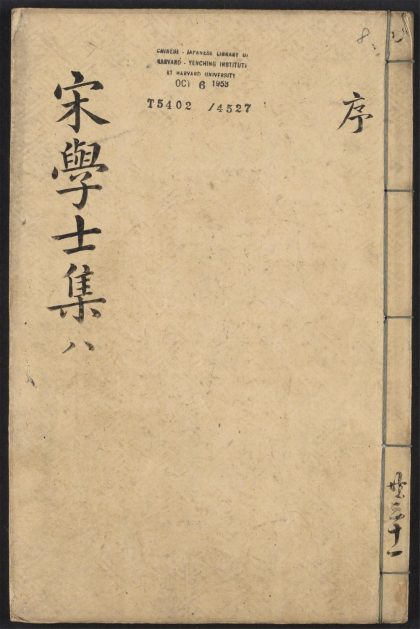 8
CHINESE - JAPANESE LIBRARY OF
HARVARD - YENCHING INSTITUTE
AT HARVARD UNIVERSITY
OCT 6 1953
T5402 /4527
序
宋學士集
八
共三十一